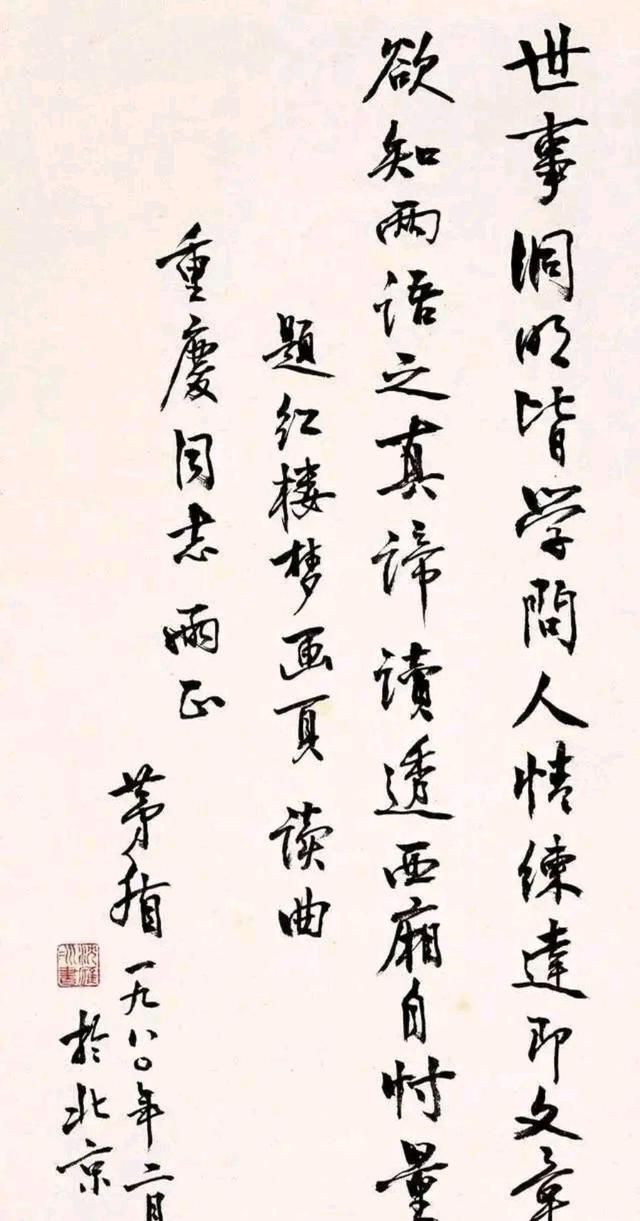 世事洞明皆学問人情練達即文章
欲知兩语之真谛讀透西廂自忖量
题红楼梦画頁 读曲
重慶同志兩正
茅盾一九八〇年二月
於北京
沈雁冰書